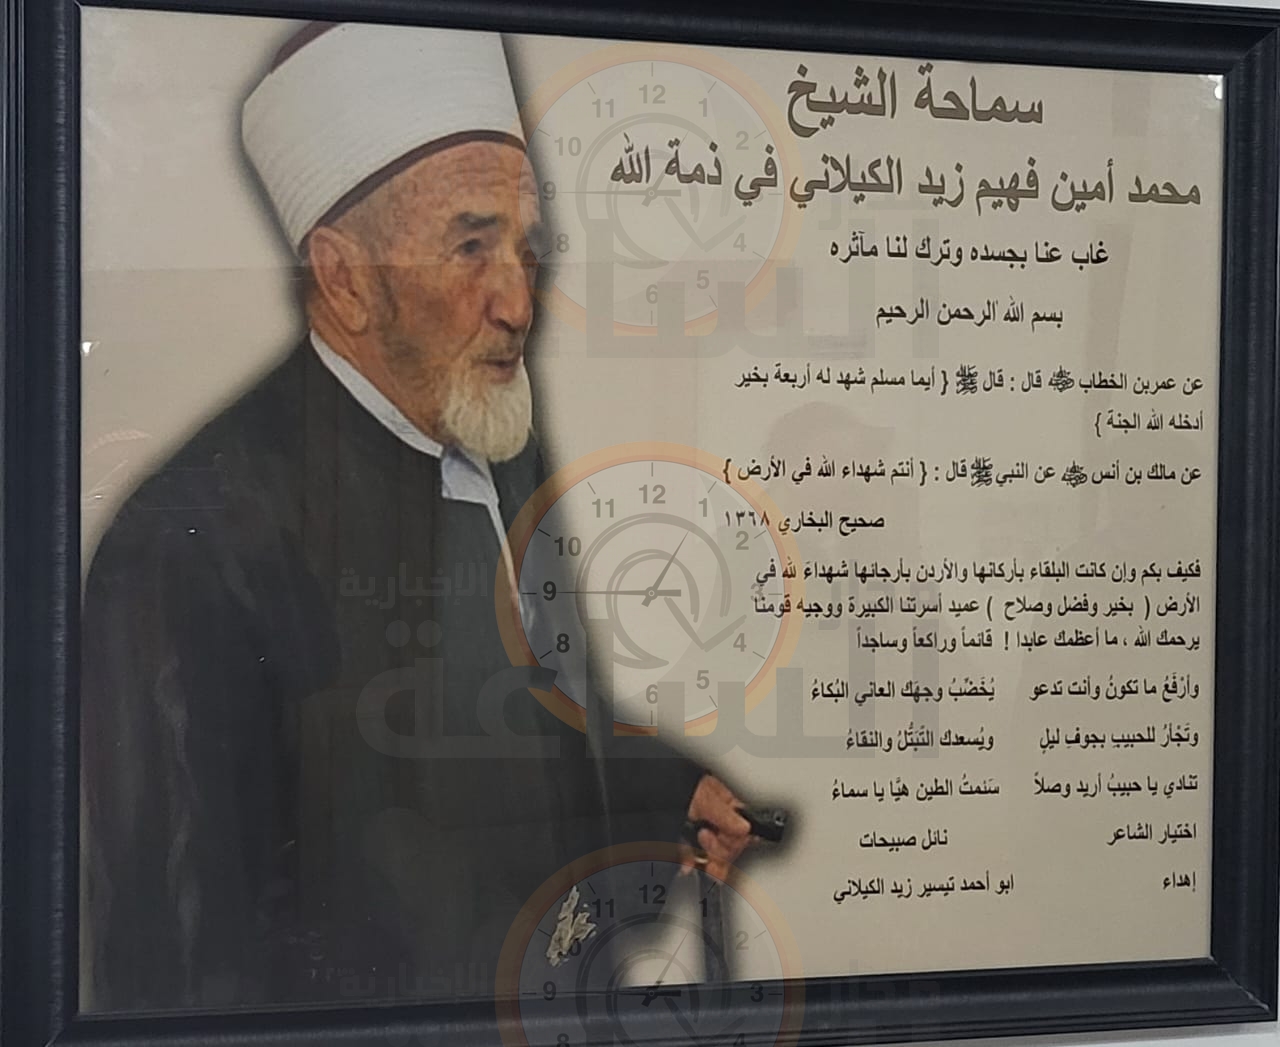 سماحة الشيخ
محمد أمين فهيم زيد الكيلاني في ذمة الله
غاب عنا بجسده وترك لنا مآثره
بسم الله الرحمن الرحيم
عن عمربن الخطاب قال : قال ﷺ { أيما مسلم شهد له أربعة بخير
أدخله الله الجنة }
عن مالك بن أنس عن النبي ﷺ قال : { أنتم شهداء الله في الأرض }
صحيح البخاري ١٣٦٨
فكيف بكم وإن كانت البلقاء بأركانها والأردن بأرجانها شهداءَ لله في
الأرض ( بخير وفضل وصلاح ) عميد أسرتنا الكبيرة ووجيه قومنا
يرحمك الله ، ما أعظمك عابدا ! قائماً وراكعاً وساجداً
وأرْفَعُ ما تكونُ وأنت تدعو يُخَضّبُ وجهَك العاني البُكاءُ
وتَجْأرُ للحبيبِ بجوفِ ليلٍ ويُسعدك التّبَتُّلُ والنقاءُ
تنادي يا حبيبُ أريد وصلاً سَئمتُ الطين هيَّا يا سماءُ
اختيار الشاعر نائل صبيحات
إهداء ابو أحمد تيسير زيد الكيلاني
مدار الساعة الإخبارية
12 1 2 3 4 5 6 8 9 10 11